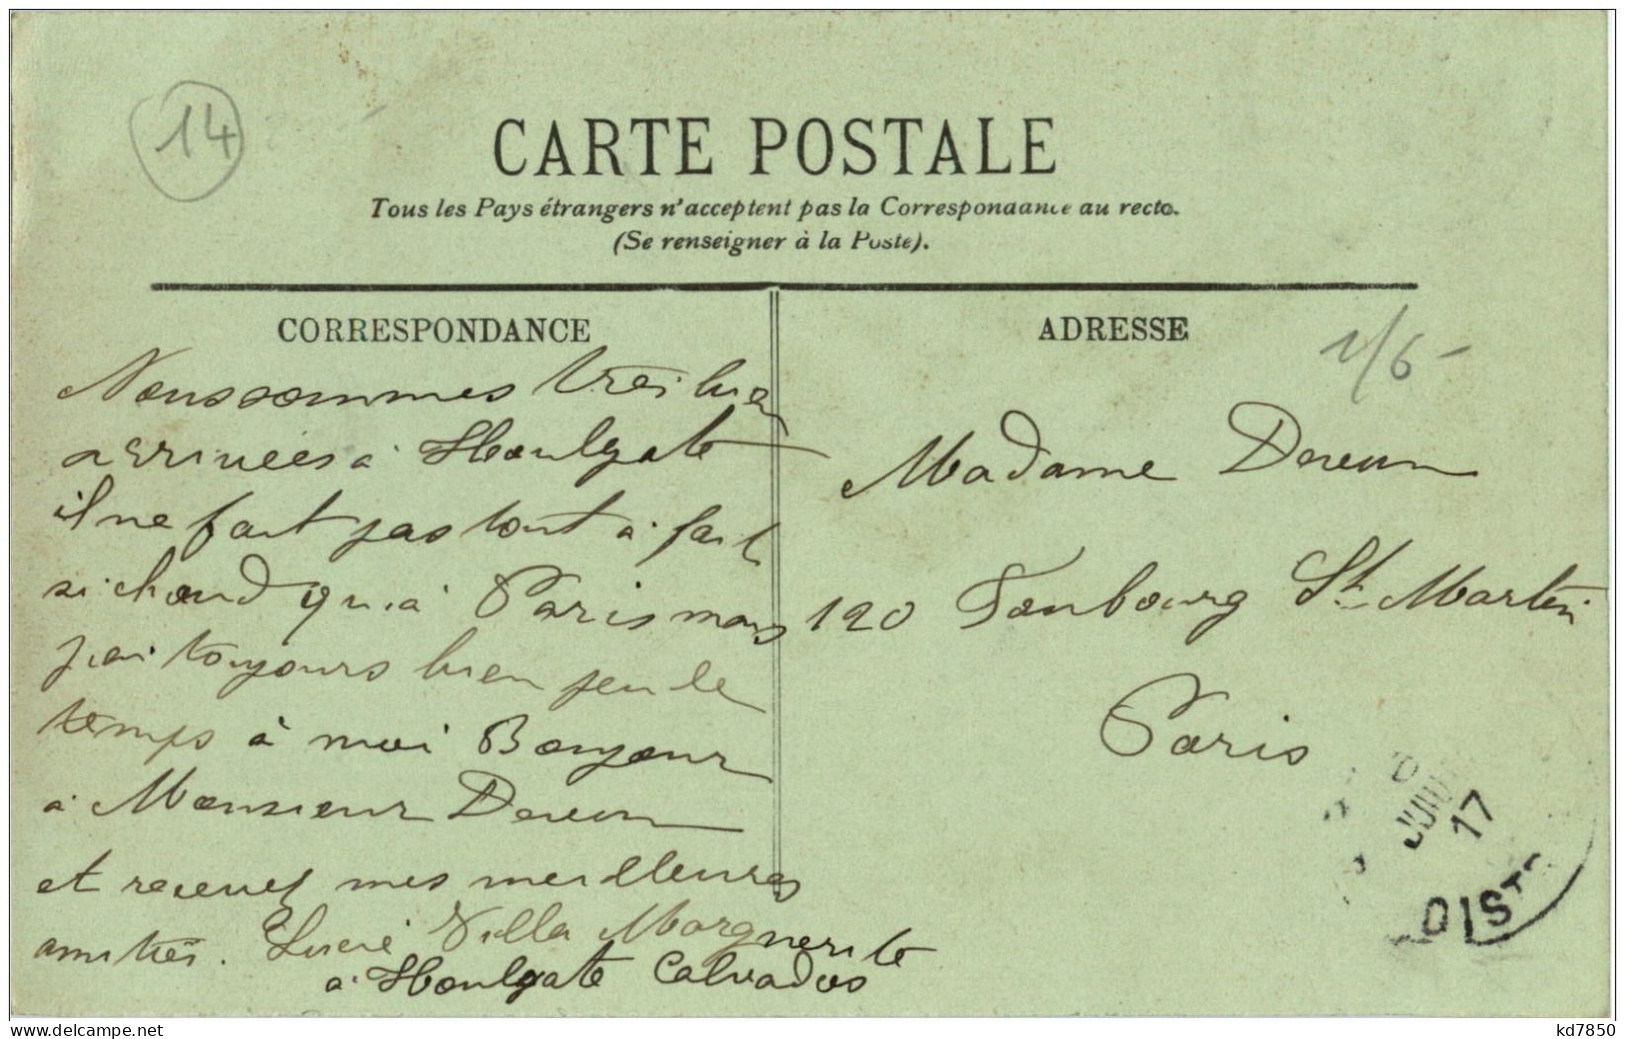 14
CARTE POSTALE
Tous les Pays étrangers n'acceptent pas la Correspondance au recto.
(Se renseigner à la Poste).
CORRESPONDANCE
Nous sommes très bien
arrivées à Houlgate
il ne fait pas tout à fait
si chaud qu'à Paris mais
j'ai toujours bien peu de
temps à moi Bonjour
à Monsieur
et recevez mes meilleures
amitiés. Lucie Villa Marguerite
à Houlgate Calvados
ADRESSE
1/6-
Madame
120 Faubourg St Martin
Paris
17
DIST
kd7850
delcampe.net